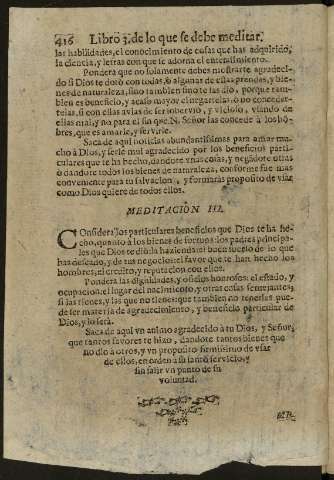 416 Libro 3. de lo que se debe meditar.
las habilidades, el conocimiento de cosas que has adquirido,
la ciencia, y letras con que te adorna el entendimiento.
Pondera que no solamente debes mostrarte agradeci-
do si Dios te dotò con todas, ò algunas de estas prendas, y bie-
nes de naturaleza, sino tambien sino te las dio, porque tam-
bien es beneficio, y acaso mayor el negartelas, ò no conceder-
telas, si con ellas avias de ser sobervio, y vicioso, viando de
ellas mal, y no para el fin que N. Señor las concede à los ho-
bres, que es amarle, y servirle.
Saca de aqui noticias abundantissimas para amar mu-
cho à Dios, y serle mui agradecido por los beneficios parti-
culares que te ha hecho, dandote vnas cosas, y negandote otras
ò dandote todos los bienes de naturaleza, conforme fue mas
conveniente para tu salvacion, y formaràs proposito de vsar
como Dios quiere de todos ellos.
MEDITACION III.
COnsidera los particulares beneficios que Dios te ha he-
cho, quanto à los bienes de fortuna: los padres principa-
les que Dios te diò: la hazienda: el buen sucesso de lo que
has deseado, y de tus negocios: el favor que te han hecho los
hombres: el credito, y reputacion con ellos.
Pondera las dignidades, y oficios honrosos: el estado, y
ocupacion: el lugar del nacimiento, y otras cosas semejantes:
si las tienes, y las que no tienes: que tambien no tenerlas pue-
de ser materia de agradecimiento, y beneficio particular de
Dios, y lo serà.
Saca de aqui vn animo agradecido à tu Dios, y Señor,
que tantos favores te hizo, dandote tantos bienes que
no diò à otros, y vn proposito firmissimo de vsar
de ellos, en orden à su santo servicio, y
sin salir vn punto de su
voluntad.